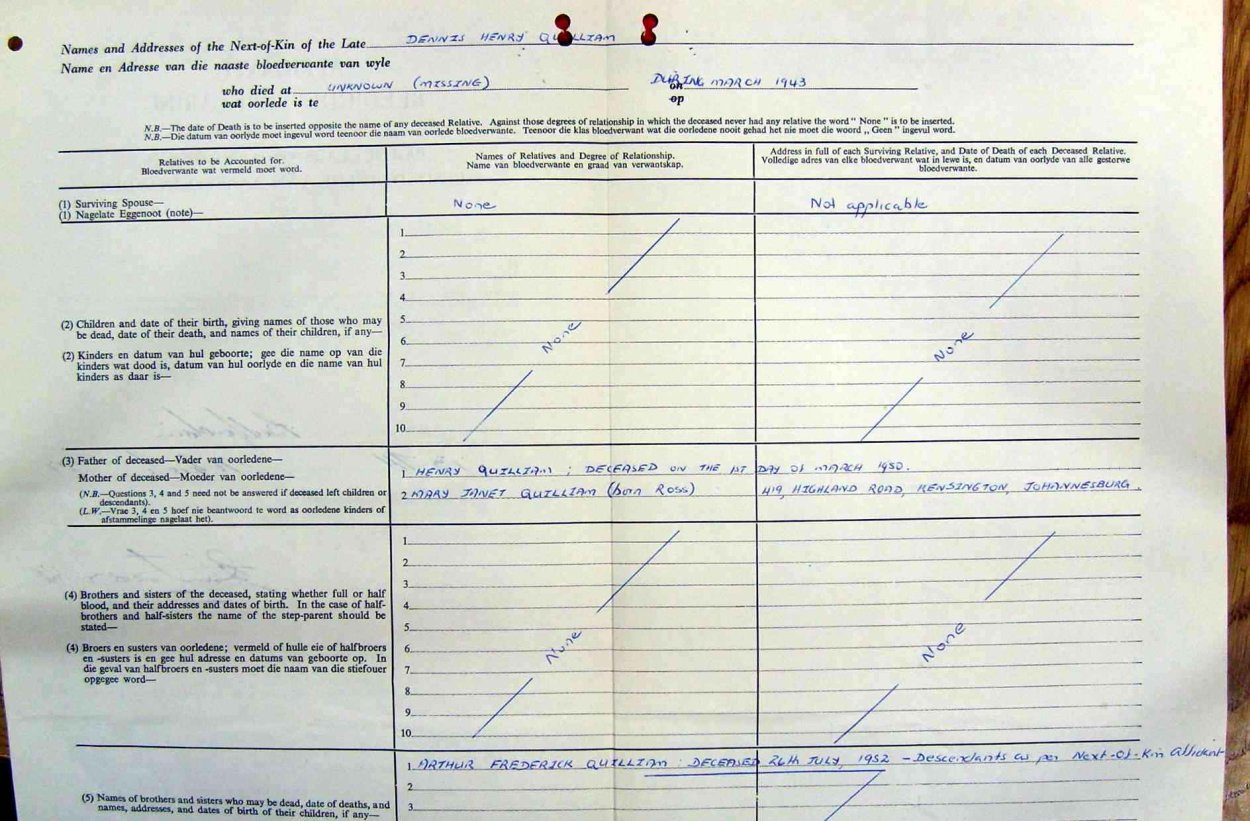 Names and Addresses of the Next-of-Kin of the Late DENNIS HENRY QUILLIAM
Name en Adresse van die naaste bloedverwante van wyle
who died at UNKNOWN (MISSING) on DURING MARCH 1943
wat oorlede is te op
N.B.—The date of Death is to be inserted opposite the name of any deceased Relative. Against those degrees of relationship in which the deceased never had any relative the word "None" is to be inserted.
N.B.—Die datum van oorlyde moet ingevul word teenoor die naam van oorlede bloedverwante. Teenoor die klas bloedverwant wat die oorledene nooit gehad het nie moet die woord „Geen" ingevul word.
Relatives to be Accounted for.
Bloedverwante wat vermeld moet word.
Names of Relatives and Degree of Relationship.
Name van bloedverwante en graad van verwantskap.
Address in full of each Surviving Relative, and Date of Death of each Deceased Relative.
Volledige adres van elke bloedverwant wat in lewe is, en datum van oorlyde van alle gestorwe
bloedverwante.
(1) Surviving Spouse— None Not applicable
(1) Nagelate Eggenoot (note)—
1
2
3
4
(2) Children and date of their birth, giving names of those who may
be dead, date of their death, and names of their children, if any—
(2) Kinders en datum van hul geboorte; gee die name op van die
kinders wat dood is, datum van hul oorlyde en die name van hul
kinders as daar is—
5
6 None None
7
8
9
10
(3) Father of deceased—Vader van oorledene—
Mother of deceased—Moeder van oorledene—
(N.B.—Questions 3, 4 and 5 need not be answered if deceased left children or
descendants).
(L.W.—Vrae 3, 4 en 5 hoef nie beantwoord te word as oorledene kinders of
afstammelinge nagelaat het).
1 HENRY QUILLIAM ; DECEASED ON THE 1ST DAY OF MARCH 1950.
2 MARY JANET QUILLIAM (born Ross) 419, HIGHLAND ROAD, KENSINGTON, JOHANNESBURG.
1
2
3
4
(4) Brothers and sisters of the deceased, stating whether full or half
blood, and their addresses and dates of birth. In the case of half-
brothers and half-sisters the name of the step-parent should be
stated—
(4) Broers en susters van oorledene; vermeld of hulle eie of halfbroers
en -susters is en gee hul adresse en datums van geboorte op. In
die geval van halfbroers en -susters moet die naam van die stiefouer
opgegee word—
5
6 None None
7
8
9
10
1 ARTHUR FREDERICK QUILLIAM : DECEASED 26th JULY, 1952 – Descendants as per Next-Of-Kin
2
(5) Names of brothers and sisters who may be dead, date of deaths, and
names, addresses, and dates of birth of their children, if any—
3